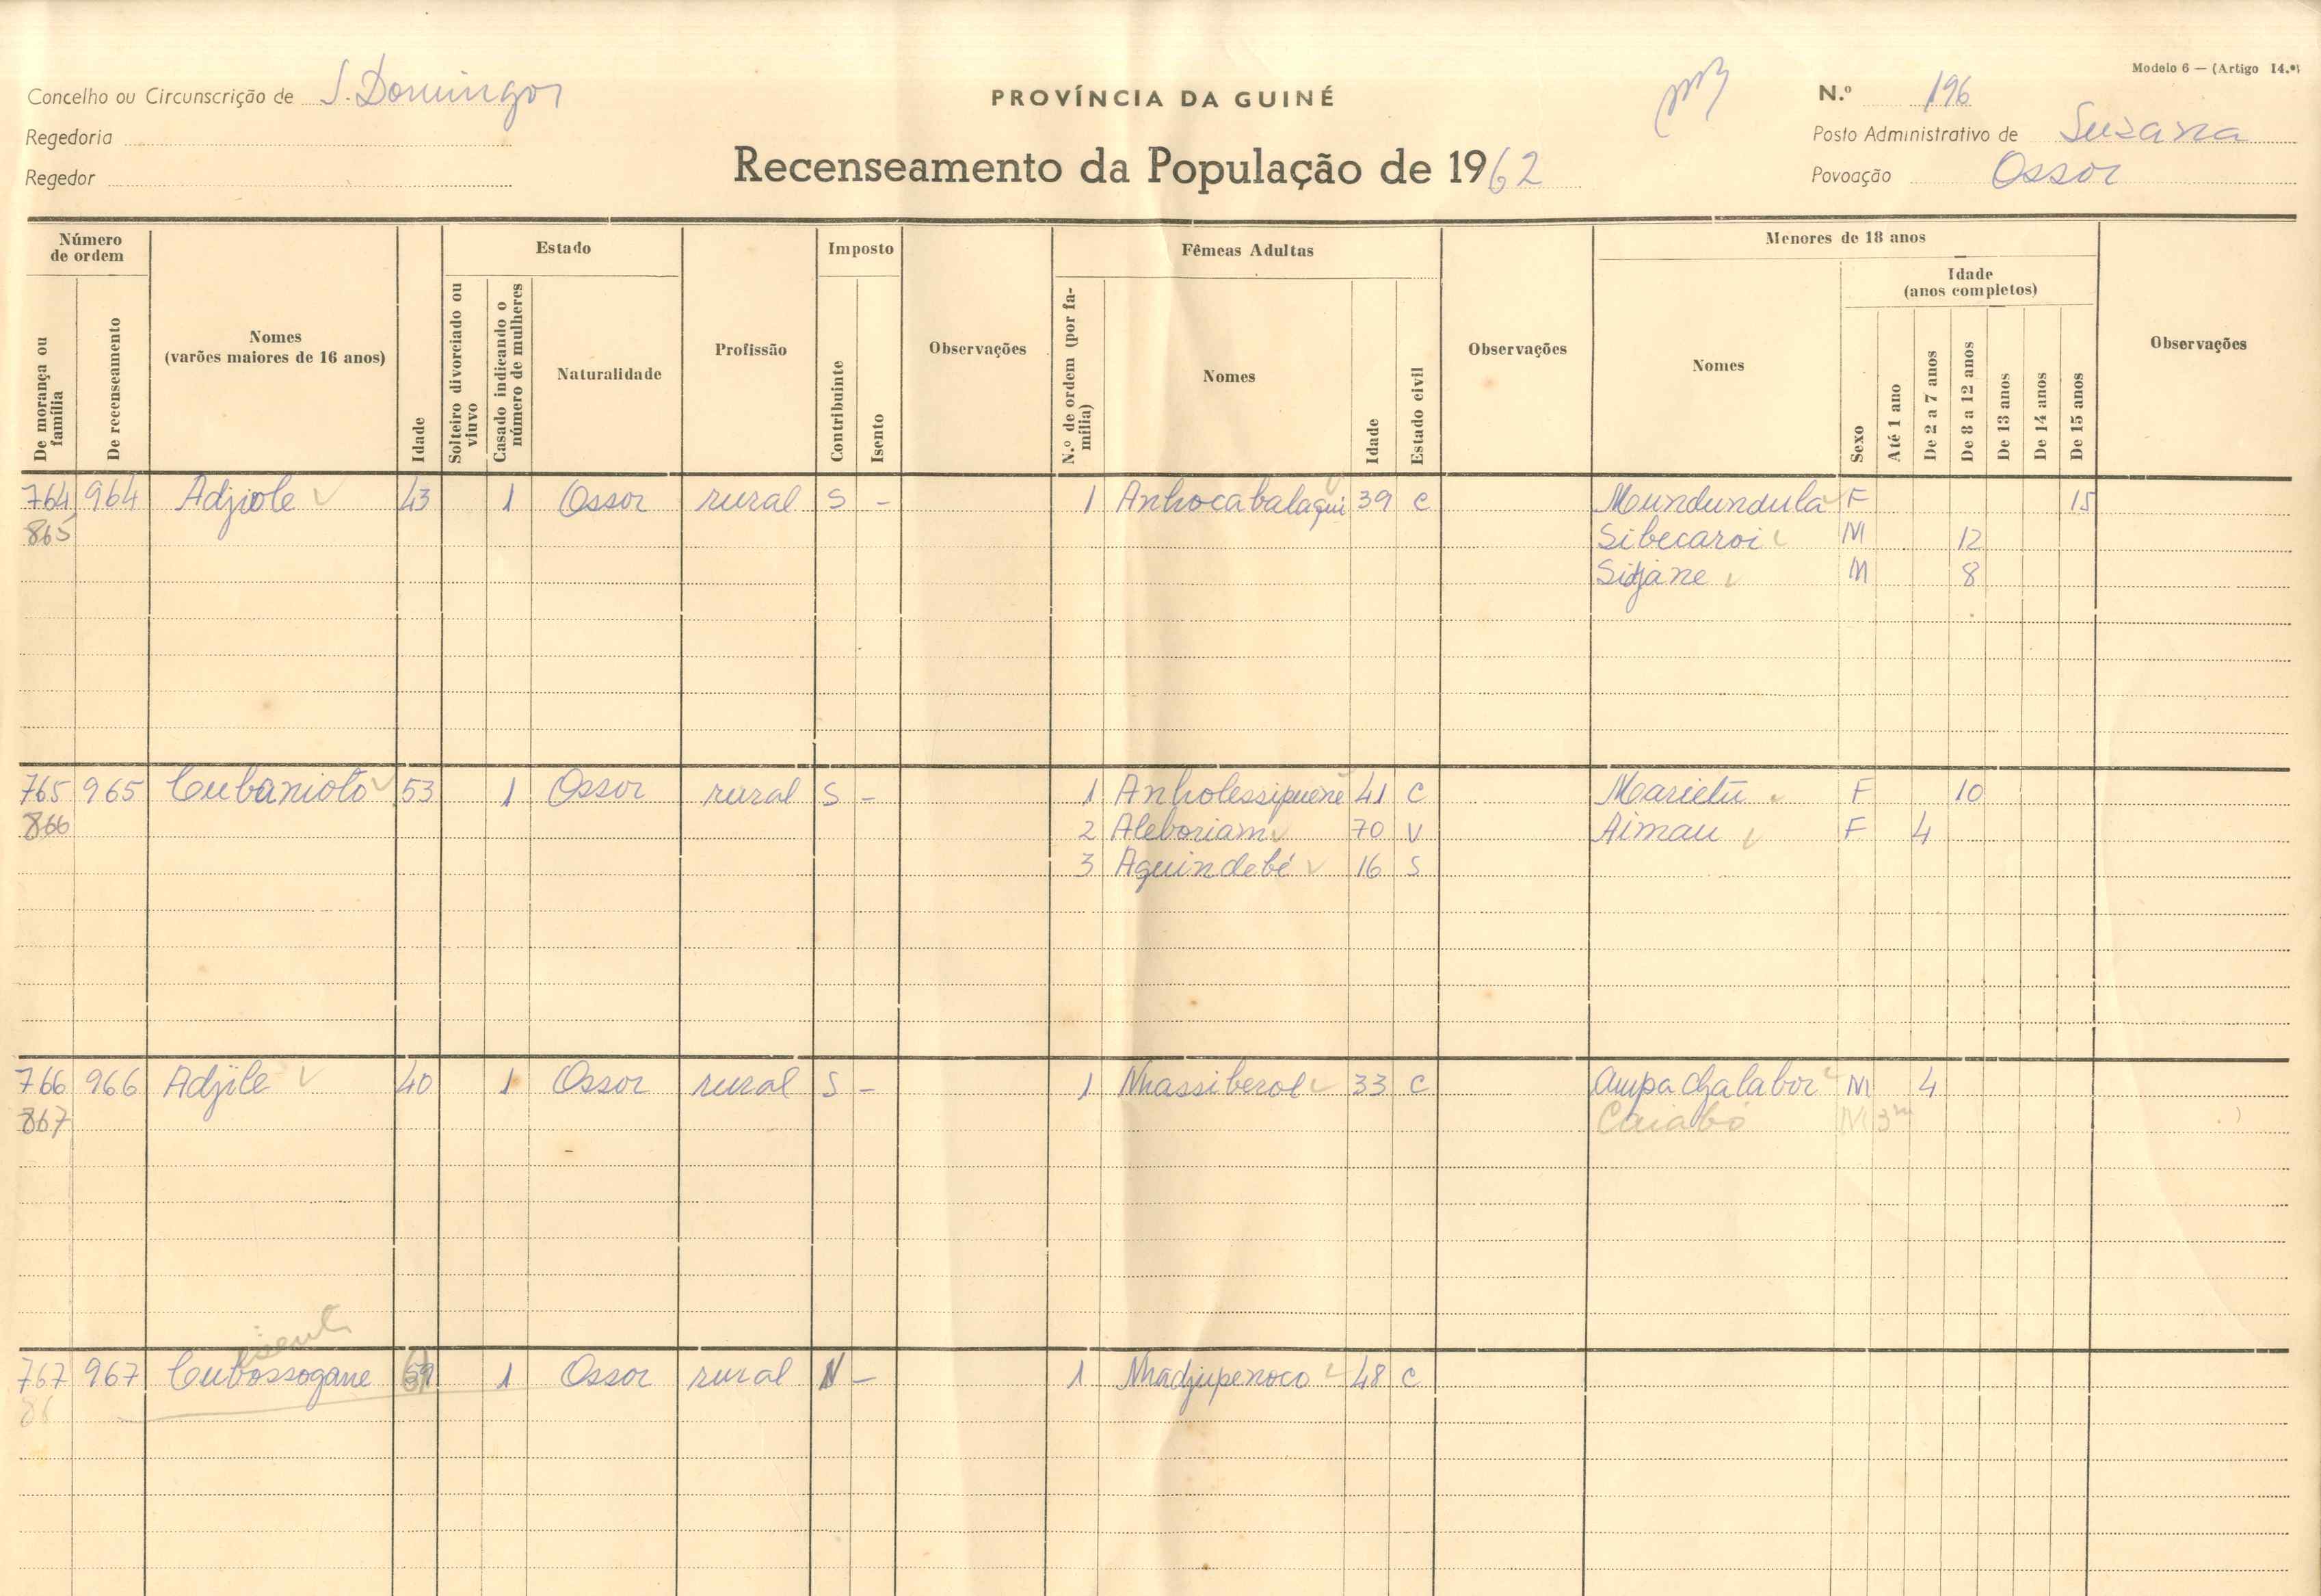 Modelo 6 — (Artigo 14.º)
Concelho ou Circunscrição de S. Domingos
PROVÍNCIA DA GUINÉ
N.º 196
Regedoria
Posto Administrativo de Suzana
Regedor
Recenseamento da População de 1962
Povoação Ossor
Número de ordem
Estado
Imposto
Fêmeas Adultas
Menores de 18 anos
Idade (anos completos)
De morança ou família
De recenseamento
Nomes (varões maiores de 16 anos)
Idade
Solteiro divorciado ou viuvo
Casado indicando o número de mulheres
Naturalidade
Profissão
Contribuinte
Isento
Observações
N.º de ordem (por família)
Nomes
Idade
Estado civil
Observações
Nomes
Sexo
Até 1 ano
De 2 a 7 anos
De 8 a 12 anos
De 13 anos
De 14 anos
De 15 anos
Observações
764 964 Adjiole 43 1 Ossor rural S - 1 Anhocabalaqui 39 C Mundundula F 15
865 Sibecaroi M 12
Sidjane M 8
765 965 Cubanioto 53 1 Ossor rural S - 1 Anholessipuene 41 C Marietu F 10
866 2 Aleboriam 70 V Aimau F 4
3 Aquindebé 16 S
766 966 Adjile 40 1 Ossor rural S - 1 Nhassiberol 33 C Ampachalabor M 4
867 Caiabó M 3m
767 967 Cubossogane 1 Ossor rural N - 1 Nhadjupenoco 48 C
86